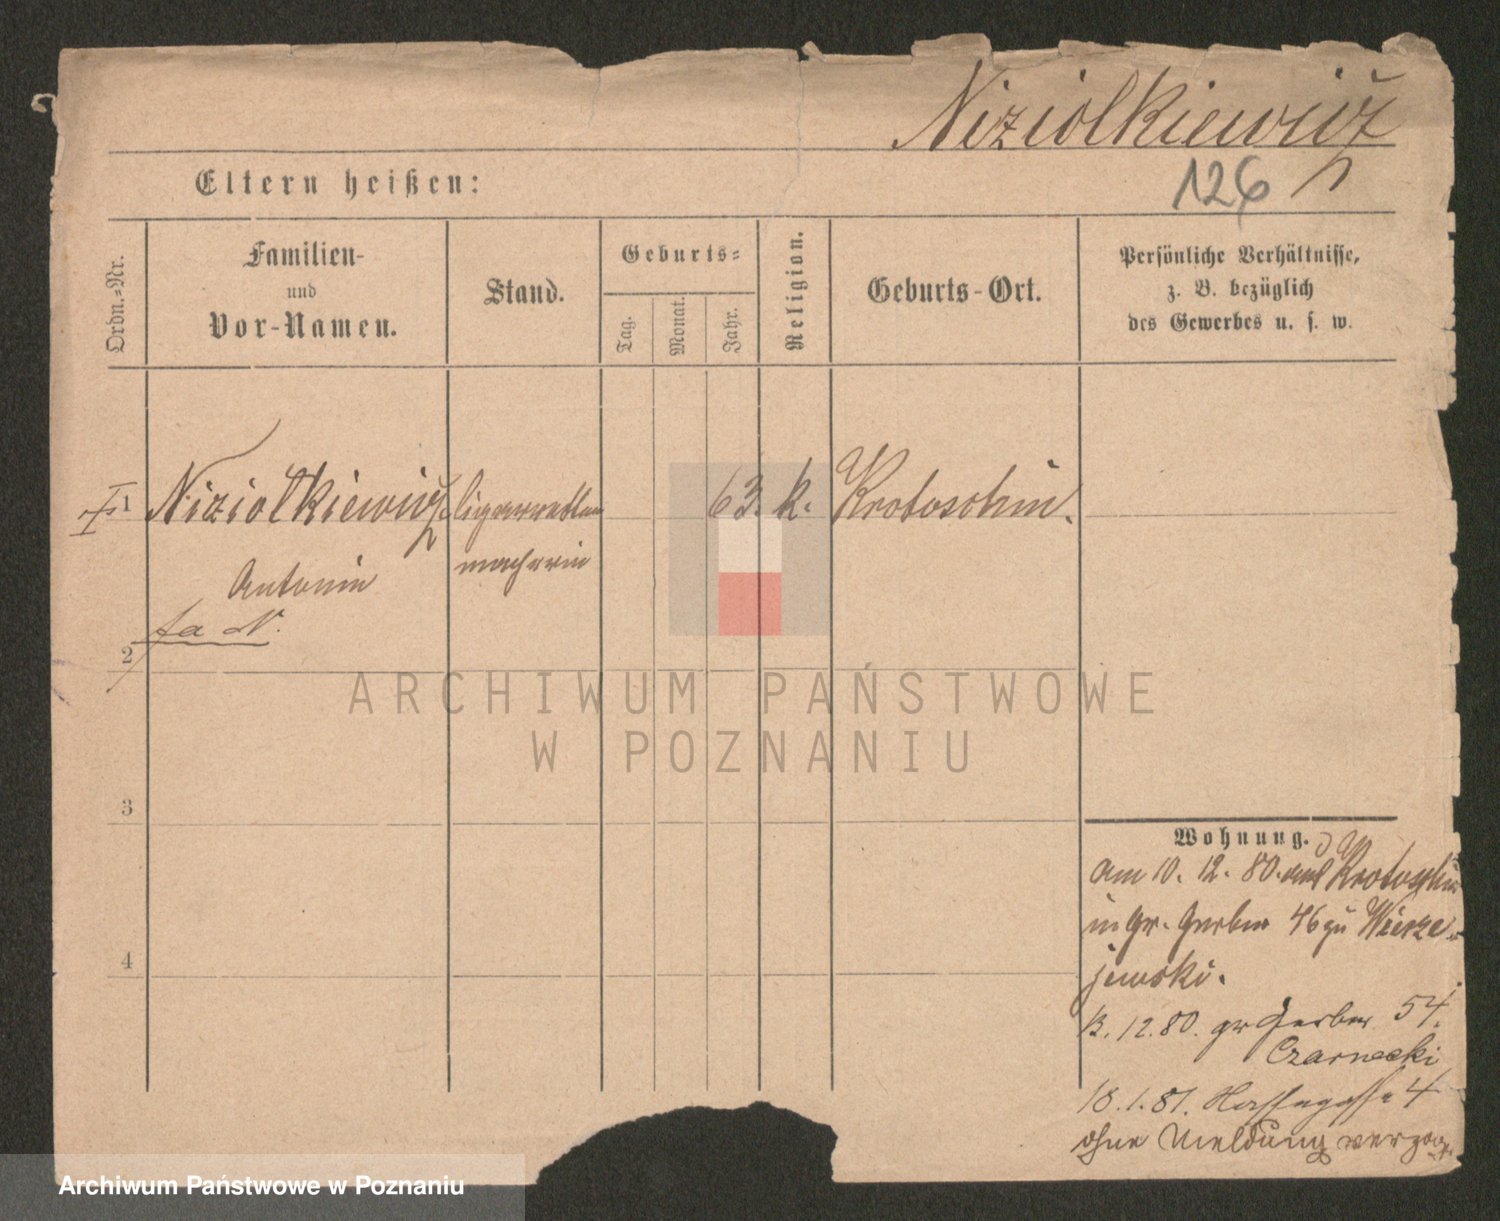 Niziolkiewicz
126
Eltern heißen:
Ordn.-Nr.
Familien-
und
Vor-Namen.
Stand.
Geburts-
Tag.
Monat.
Jahr.
Religion.
Geburts-Ort.
Persönliche Verhältnisse,
z. B. bezüglich
des Gewerbes u. s. w.
1
Niziolkiewicz
Antonin
Cigarretten
macherin
63. k. Krotoschin.
2
3
4
ARCHIWUM PAŃSTWOWE
W POZNANIU
Wohnung.
am 10. 12. 80. aus Krotoschin
in Gr. Gerber 46 zu Wierze-
jewski.
13. 12. 80. gr Gerber 54.
Czarnecki
18. 1. 81. 4
ohne Meldung verzog.
Archiwum Państwowe w Poznaniu